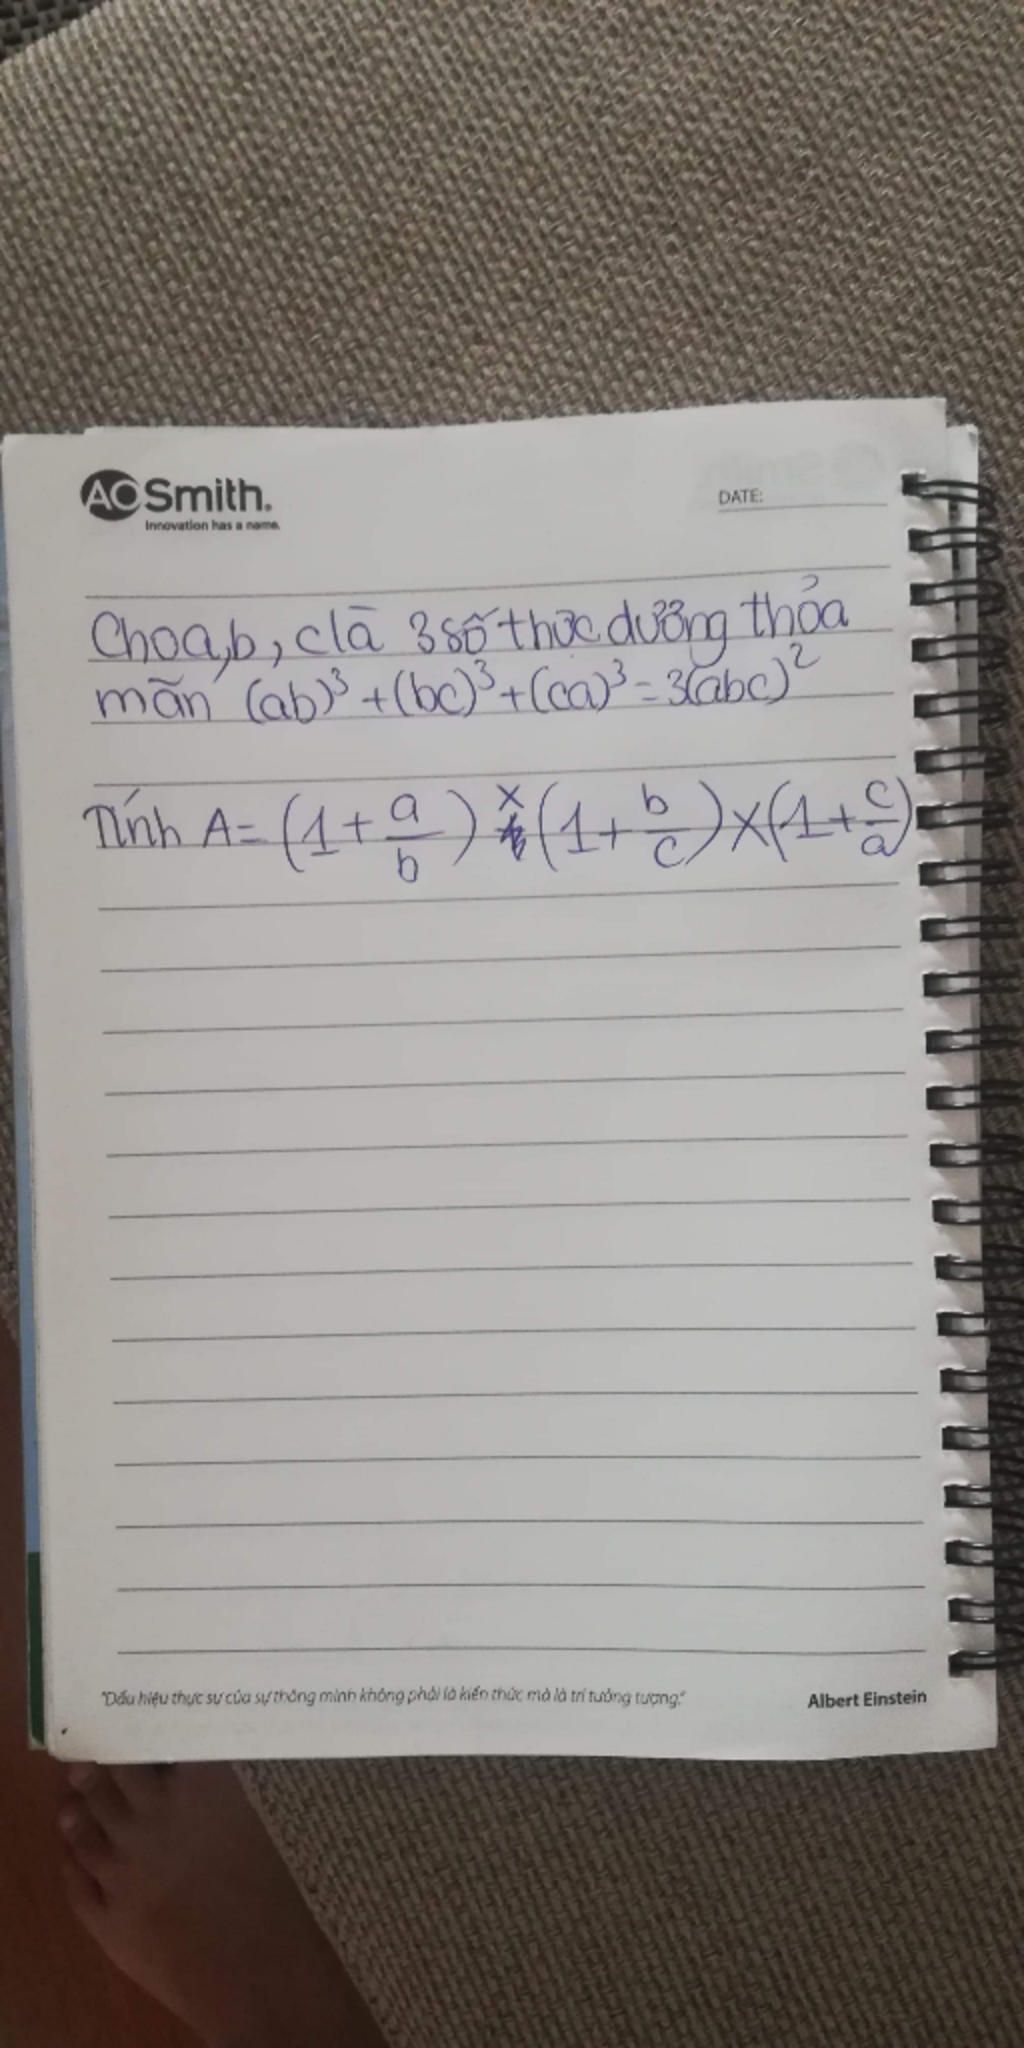 AO Smith.
Innovation has a name.
DATE:
Cho a,b, c là 3 số thực dương thỏa
mãn (ab)³ + (bc)³ + (ca)³ = 3(abc)²
Tính A = (1 + a/b) x (1 + b/c) x (1 + c/a)
"Dấu hiệu thực sự của sự thông minh không phải là kiến thức mà là trí tưởng tượng."
Albert Einstein